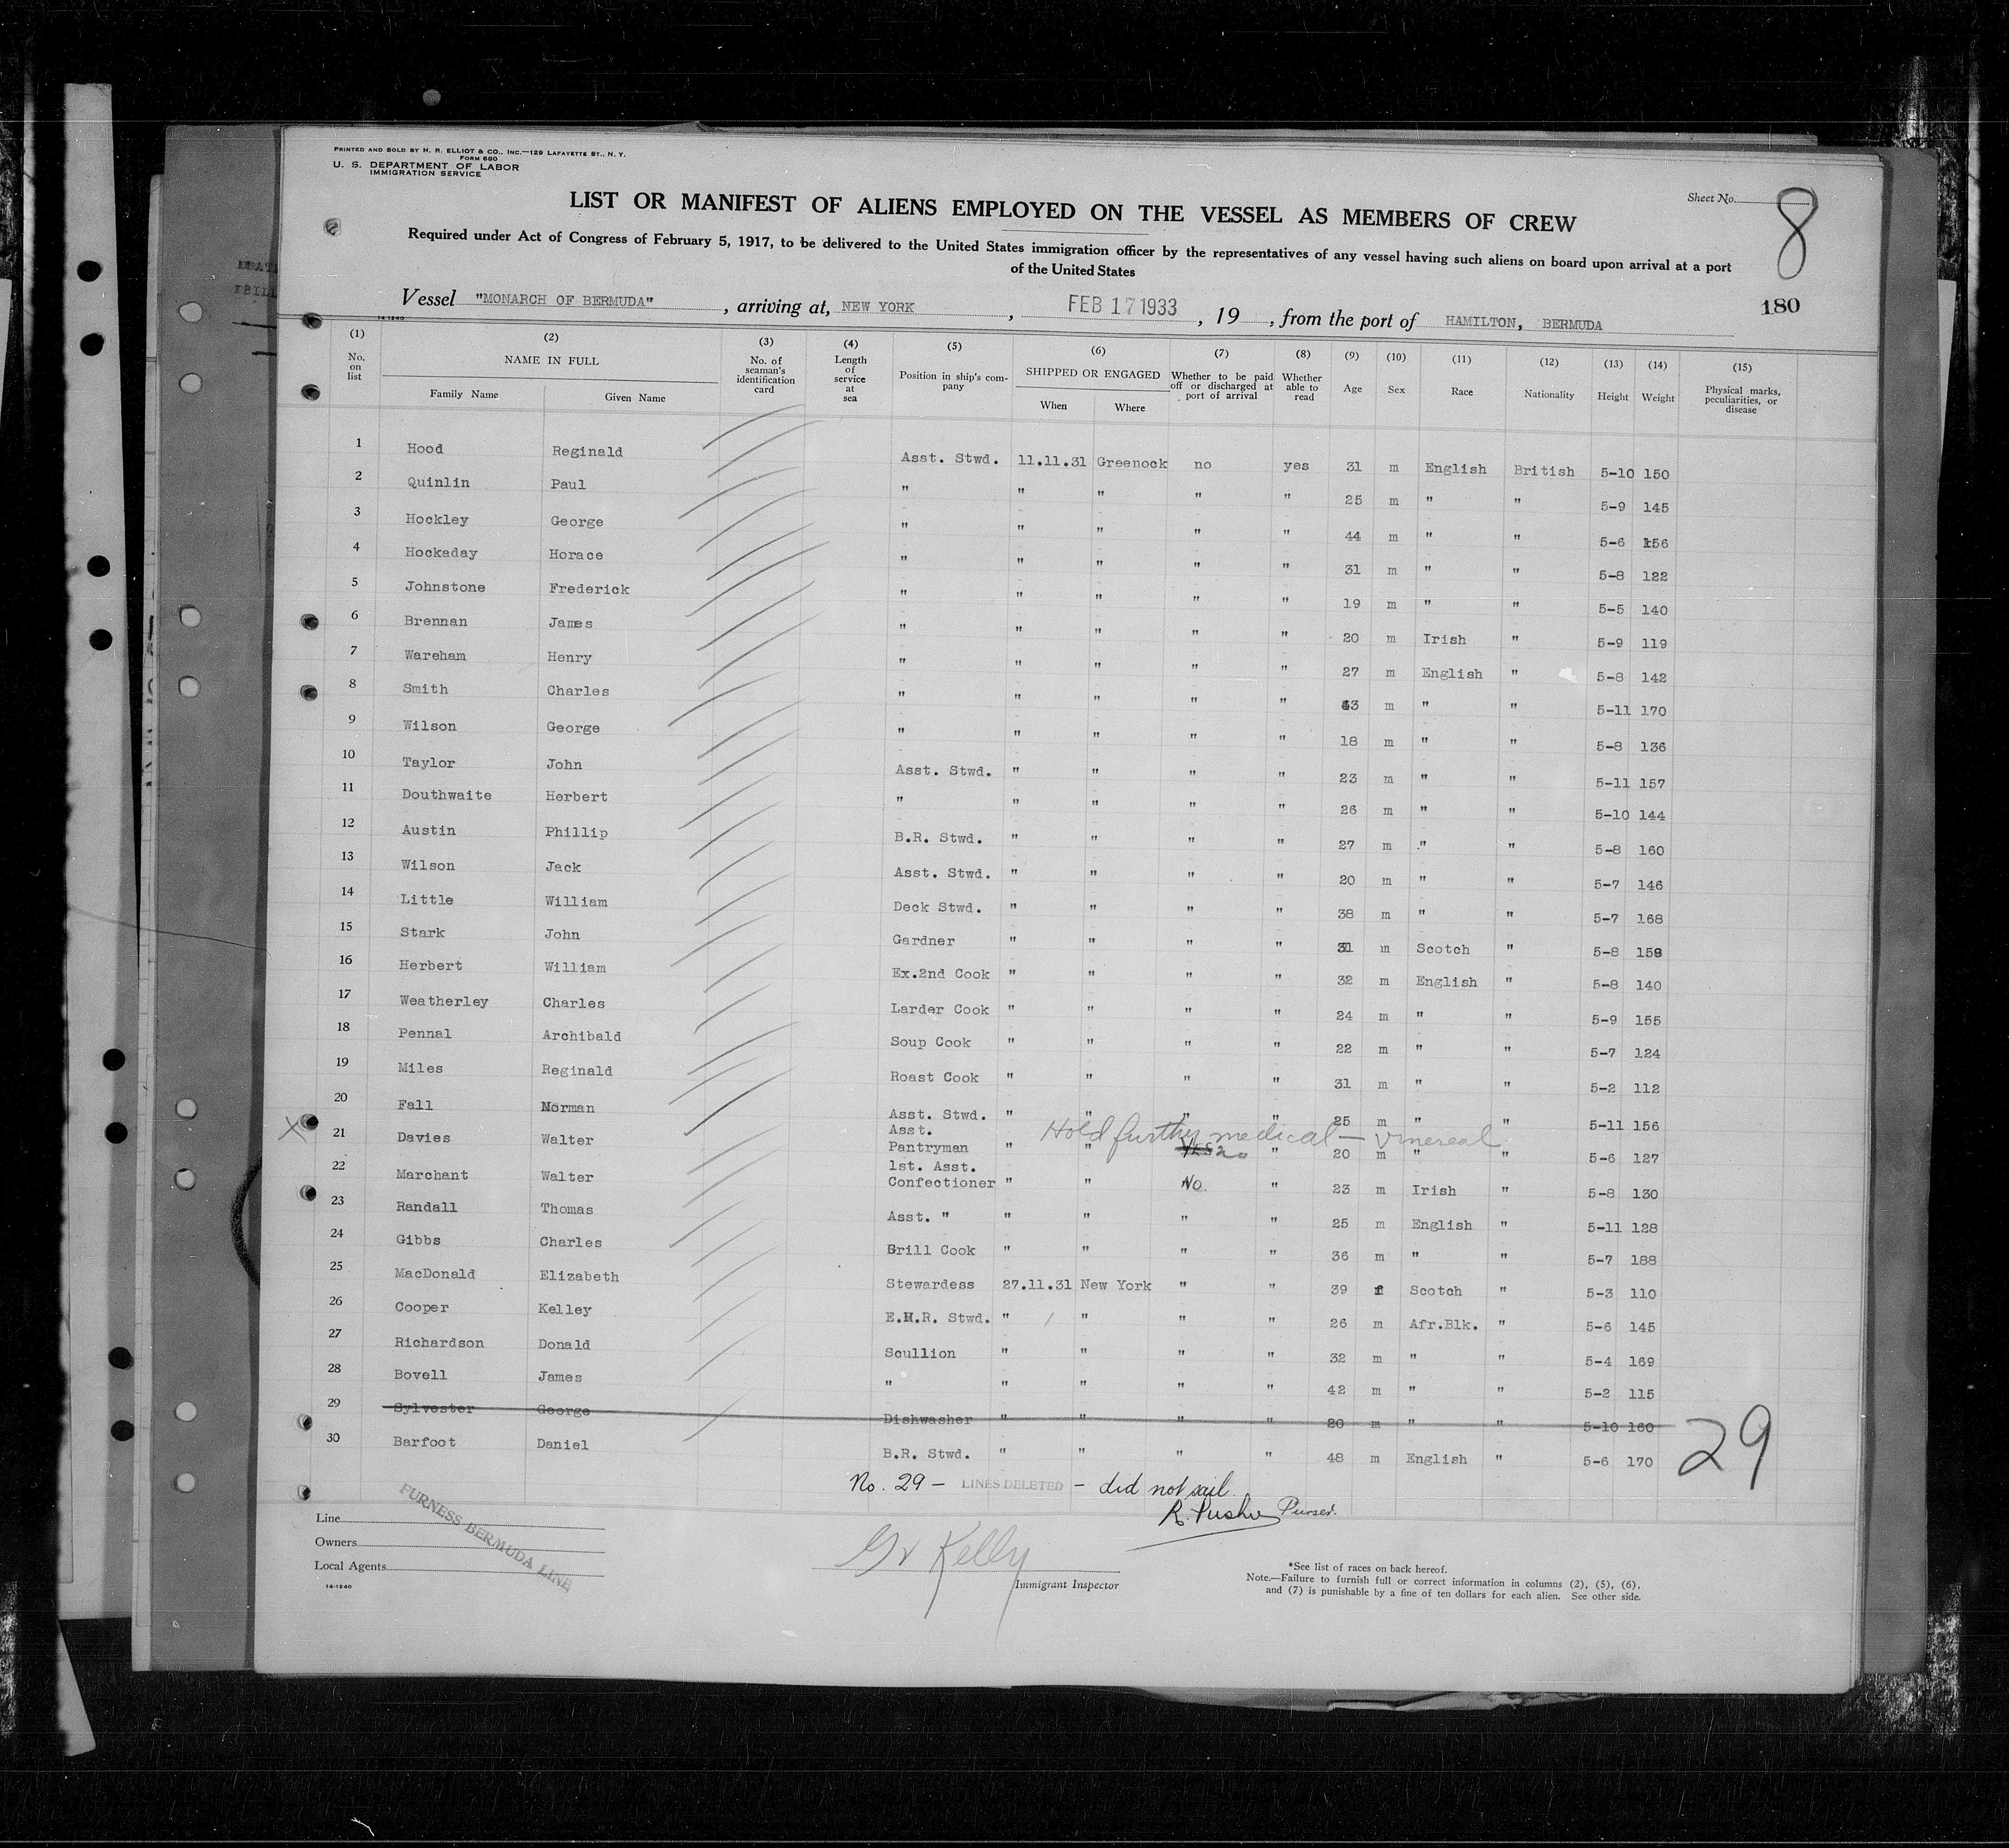 PRINTED AND SOLD BY H. R. ELLIOT & CO., INC.—129 LAFAYETTE ST., N. Y.
FORM 680
U. S. DEPARTMENT OF LABOR
IMMIGRATION SERVICE
Sheet No. 8
LIST OR MANIFEST OF ALIENS EMPLOYED ON THE VESSEL AS MEMBERS OF CREW
Required under Act of Congress of February 5, 1917, to be delivered to the United States immigration officer by the representatives of any vessel having such aliens on board upon arrival at a port
of the United States
180
Vessel "MONARCH OF BERMUDA", arriving at, NEW YORK, FEB 17 1933, 19, from the port of HAMILTON, BERMUDA
14-1240
(1) (2) (3) (4) (5) (6) (7) (8) (9) (10) (11) (12) (13) (14) (15)
No. on list NAME IN FULL Family Name Given Name No. of seaman's identification card Length of service at sea Position in ship's company SHIPPED OR ENGAGED When Where Whether to be paid off or discharged at port of arrival Whether able to read Age Sex Race Nationality Height Weight Physical marks, peculiarities, or disease
1 Hood Reginald Asst. Stwd. 11.11.31 Greenock no yes 31 m English British 5-10 150
2 Quinlin Paul " " " " " 25 m " " 5-9 145
3 Hockley George " " " " " 44 m " " 5-6 156
4 Hockaday Horace " " " " " 31 m " " 5-8 122
5 Johnstone Frederick " " " " " 19 m " " 5-5 140
6 Brennan James " " " " " 20 m Irish " 5-9 119
7 Wareham Henry " " " " " 27 m English " 5-8 142
8 Smith Charles " " " " " m " " 5-11 170
9 Wilson George " " " " " 18 m " " 5-8 136
10 Taylor John Asst. Stwd. " " " " 23 m " " 5-11 157
11 Douthwaite Herbert " " " " " 26 m " " 5-10 144
12 Austin Phillip B.R. Stwd. " " " " 27 m " " 5-8 160
13 Wilson Jack Asst. Stwd. " " " " 20 m " " 5-7 146
14 Little William Deck Stwd. " " " " 38 m " " 5-7 168
15 Stark John Gardner " " " " 31 m Scotch " 5-8 159
16 Herbert William Ex.2nd Cook " " " " 32 m English " 5-8 140
17 Weatherley Charles Larder Cook " " " " 24 m " " 5-9 155
18 Pennal Archibald Soup Cook " " " " 22 m " " 5-7 124
19 Miles Reginald Roast Cook " " " " 31 m " " 5-2 112
20 Fall Norman Asst. Stwd. " " " " 25 m " " 5-11 156
X Hold further medical — venereal
21 Davies Walter Asst. Pantryman " " no " 20 m " " 5-6 127
22 Marchant Walter 1st. Asst. Confectioner " " No. " 23 m Irish " 5-8 130
23 Randall Thomas Asst. " " " " " 25 m English " 5-11 128
24 Gibbs Charles Grill Cook " " " " 36 m " " 5-7 188
25 MacDonald Elizabeth Stewardess 27.11.31 New York " " 39 f Scotch " 5-3 110
26 Cooper Kelley E.H.R. Stwd. " " " " 26 m Afr.Blk. " 5-6 145
27 Richardson Donald Scullion " " " " 32 m " " 5-4 169
28 Bovell James " " " " " 42 m " " 5-2 115
29 Sylvester George Dishwasher " " " " 20 m " " 5-10 160
30 Barfoot Daniel B.R. Stwd. " " " " 48 m English " 5-6 170
29
No. 29 — LINES DELETED — did not sail.
Purser.
Line
Owners
Local Agents
FURNESS BERMUDA LINE
14-1240
Kelly
Immigrant Inspector
*See list of races on back hereof.
Note.—Failure to furnish full or correct information in columns (2), (5), (6),
and (7) is punishable by a fine of ten dollars for each alien. See other side.